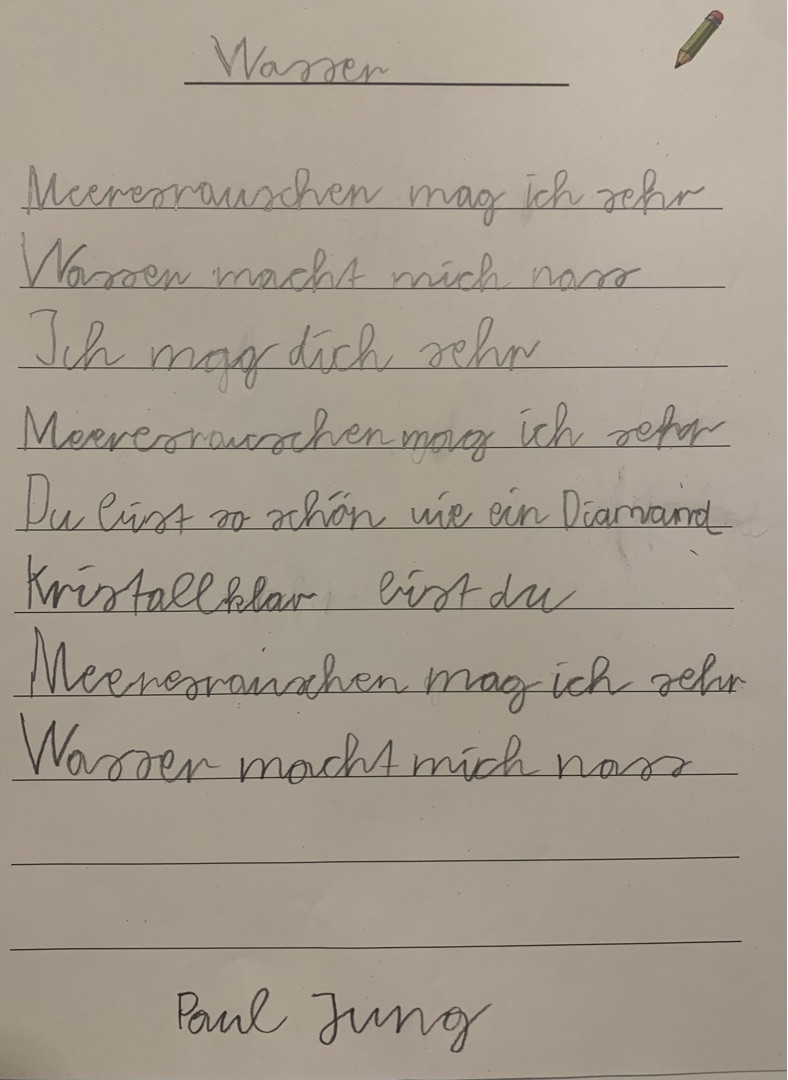 Wasser
Meeresrauschen mag ich sehr
Wasser macht mich nass
Ich mag dich sehr
Meeresrauschen mag ich sehr
Du bist so schön wie ein Diamand
Kristallklar bist du
Meeresrauschen mag ich sehr
Wasser macht mich nass
Paul Jung